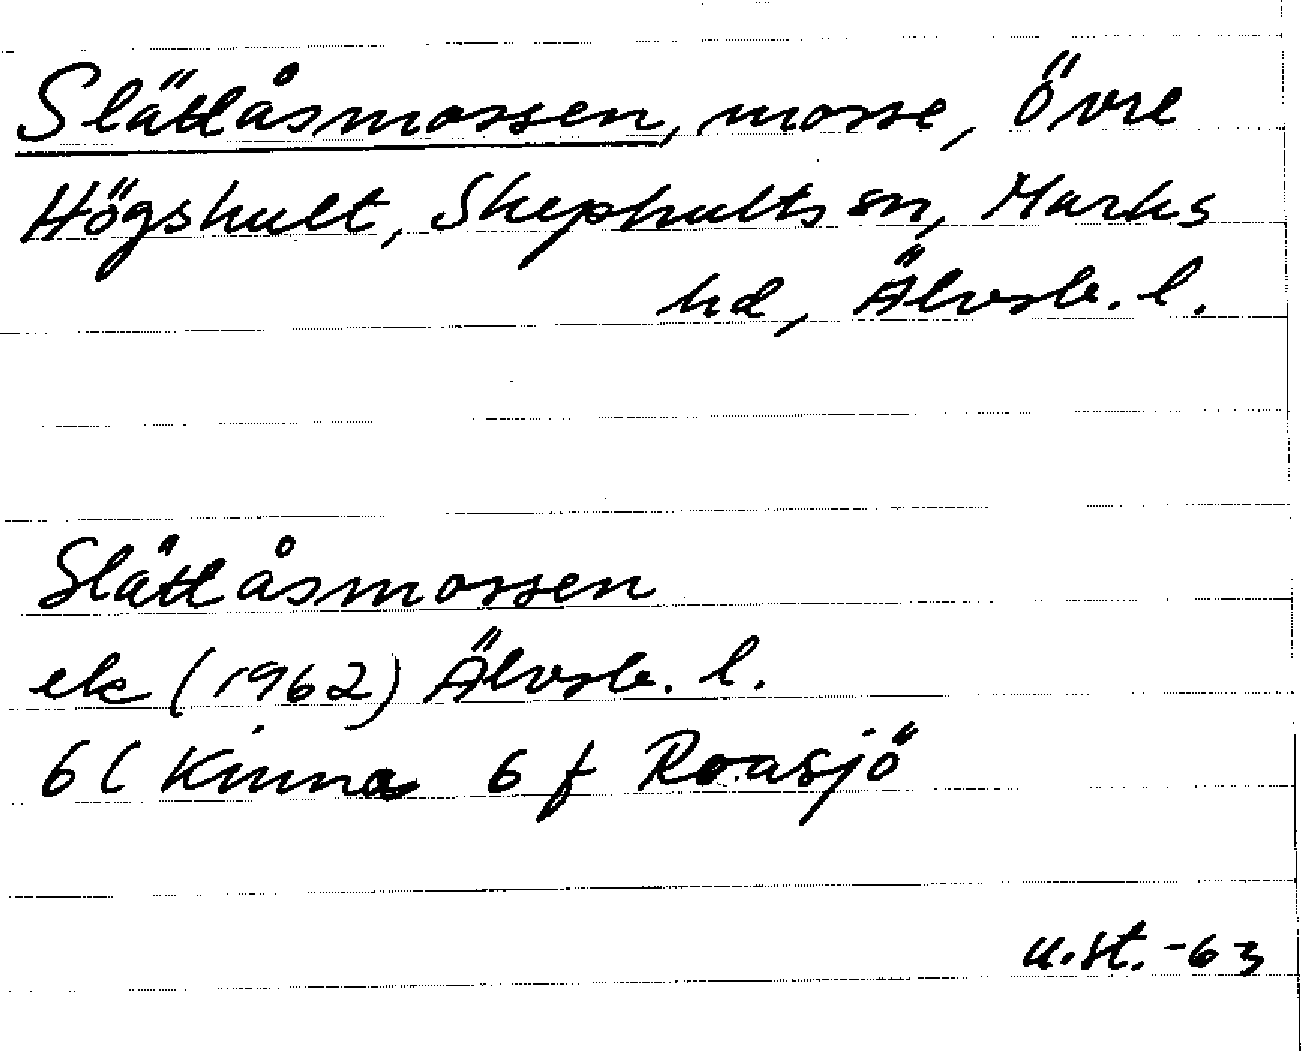 Slättåsmossen, mosse, Övre
Högshult, Skephults sn, Marks
hd, Älvsb. l.
Slättåsmossen
ek (1962) Älvsb. l.
6 C Kinna 6 f Roasjö
u.st. -63